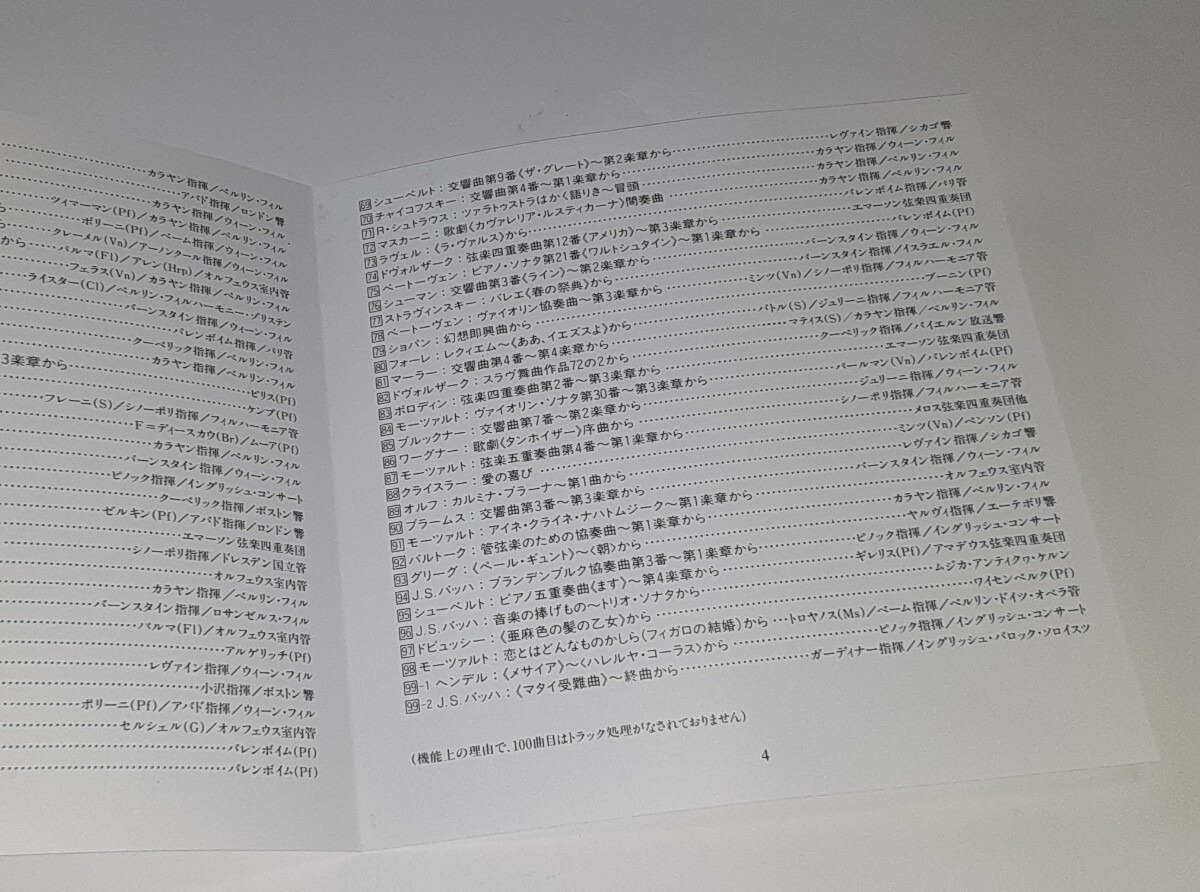 カラヤン指揮／ベルリン・フィル
アバド指揮／ロンドン響
カラヤン指揮／ウィーン・フィル
ツィマーマン(Pf)／カラヤン指揮／ベルリン・フィル
ポリーニ(Pf)／ベーム指揮／ウィーン・フィル
ら クレーメル(Vn)／アーノンクール指揮／ウィーン・フィル
から パルマ(Fl)／アレン(Hrp)／オルフェウス室内管
フェラス(Vn)／カラヤン指揮／ベルリン・フィル
ライスター(Cl)／ベルリン・フィルハーモニー・ゾリステン
バーンスタイン指揮／ウィーン・フィル
バレンボイム指揮／パリ管
クーベリック指揮／ベルリン・フィル
カラヤン指揮／ベルリン・フィル
3楽章から ピリス(Pf)
ケンプ(Pf)
フレーニ(S)／シノーポリ指揮／フィルハーモニア管
F＝ディースカウ(Br)／ムーア(Pf)
カラヤン指揮／ベルリン・フィル
バーンスタイン指揮／ウィーン・フィル
ピノック指揮／イングリッシュ・コンサート
クーベリック指揮／ボストン響
ゼルキン(Pf)／アバド指揮／ロンドン響
エマーソン弦楽四重奏団
シノーポリ指揮／ドレスデン国立管
オルフェウス室内管
カラヤン指揮／ベルリン・フィル
バーンスタイン指揮／ロサンゼルス・フィル
パルマ(Fl)／オルフェウス室内管
アルゲリッチ(Pf)
レヴァイン指揮／ウィーン・フィル
小沢指揮／ボストン響
ポリーニ(Pf)／アバド指揮／ウィーン・フィル
セルシェル(G)／オルフェウス室内管
バレンボイム(Pf)
バレンボイム(Pf)
69 シューベルト：交響曲第9番《ザ・グレート》～第2楽章から……レヴァイン指揮／シカゴ響
70 チャイコフスキー：交響曲第4番～第1楽章から……カラヤン指揮／ウィーン・フィル
71 R・シュトラウス：ツァラトゥストラはかく語りき～冒頭……カラヤン指揮／ベルリン・フィル
72 マスカーニ：歌劇《カヴァレリア・ルスティカーナ》間奏曲……カラヤン指揮／ベルリン・フィル
73 ラヴェル：《ラ・ヴァルス》から……バレンボイム指揮／パリ管
74 ドヴォルザーク：弦楽四重奏曲第12番《アメリカ》～第3楽章から……エマーソン弦楽四重奏団
75 ベートーヴェン：ピアノ・ソナタ第21番《ワルトシュタイン》～第1楽章から……バレンボイム(Pf)
76 シューマン：交響曲第3番《ライン》～第2楽章から……バーンスタイン指揮／ウィーン・フィル
77 ストラヴィンスキー：バレエ《春の祭典》から……バーンスタイン指揮／イスラエル・フィル
78 ベートーヴェン：ヴァイオリン協奏曲～第3楽章から……ミンツ(Vn)／シノーポリ指揮／フィルハーモニア管
79 ショパン：幻想即興曲から……ブーニン(Pf)
80 フォーレ：レクィエム～〈ああ、イエズスよ〉から……バトル(S)／ジュリーニ指揮／フィルハーモニア管
81 マーラー：交響曲第4番～第4楽章から……マティス(S)／カラヤン指揮／ベルリン・フィル
82 ドヴォルザーク：スラヴ舞曲作品72の2から……クーベリック指揮／バイエルン放送響
83 ボロディン：弦楽四重奏曲第2番～第3楽章から……エマーソン弦楽四重奏団
84 モーツァルト：ヴァイオリン・ソナタ第30番～第3楽章から……パールマン(Vn)／バレンボイム(Pf)
85 ブルックナー：交響曲第7番～第2楽章から……ジュリーニ指揮／ウィーン・フィル
86 ワーグナー：歌劇《タンホイザー》序曲から……シノーポリ指揮／フィルハーモニア管
87 モーツァルト：弦楽五重奏曲第4番～第1楽章から……メロス弦楽四重奏団他
88 クライスラー：愛の喜び……ミンツ(Vn)／ベンソン(Pf)
89 オルフ：カルミナ・ブラーナ～第1曲から……レヴァイン指揮／シカゴ響
90 ブラームス：交響曲第3番～第3楽章から……バーンスタイン指揮／ウィーン・フィル
91 モーツァルト：アイネ・クライネ・ナハトムジーク～第1楽章から……オルフェウス室内管
92 バルトーク：管弦楽のための協奏曲～第1楽章から……カラヤン指揮／ベルリン・フィル
93 グリーグ：《ペール・ギュント》～〈朝〉から……ヤルヴィ指揮／エーテボリ響
94 J.S.バッハ：ブランデンブルク協奏曲第3番～第1楽章から……ピノック指揮／イングリッシュ・コンサート
95 シューベルト：ピアノ五重奏曲《ます》～第4楽章から……ギレリス(Pf)／アマデウス弦楽四重奏団
96 J.S.バッハ：音楽の捧げもの～トリオ・ソナタから……ムジカ・アンティクヮ・ケルン
97 ドビュッシー：《亜麻色の髪の乙女》から……ワイセンベルク(Pf)
98 モーツァルト：恋とはどんなものかしら(フィガロの結婚)から…トロヤノス(Ms)／ベーム指揮／ベルリン・ドイツ・オペラ管
99-1 ヘンデル：《メサイア》～〈ハレルヤ・コーラス〉から……ピノック指揮／イングリッシュ・コンサート
99-2 J.S.バッハ：《マタイ受難曲》～終曲から……ガーディナー指揮／イングリッシュ・バロック・ソロイスツ
(機能上の理由で、100曲目はトラック処理がなされておりません)
4